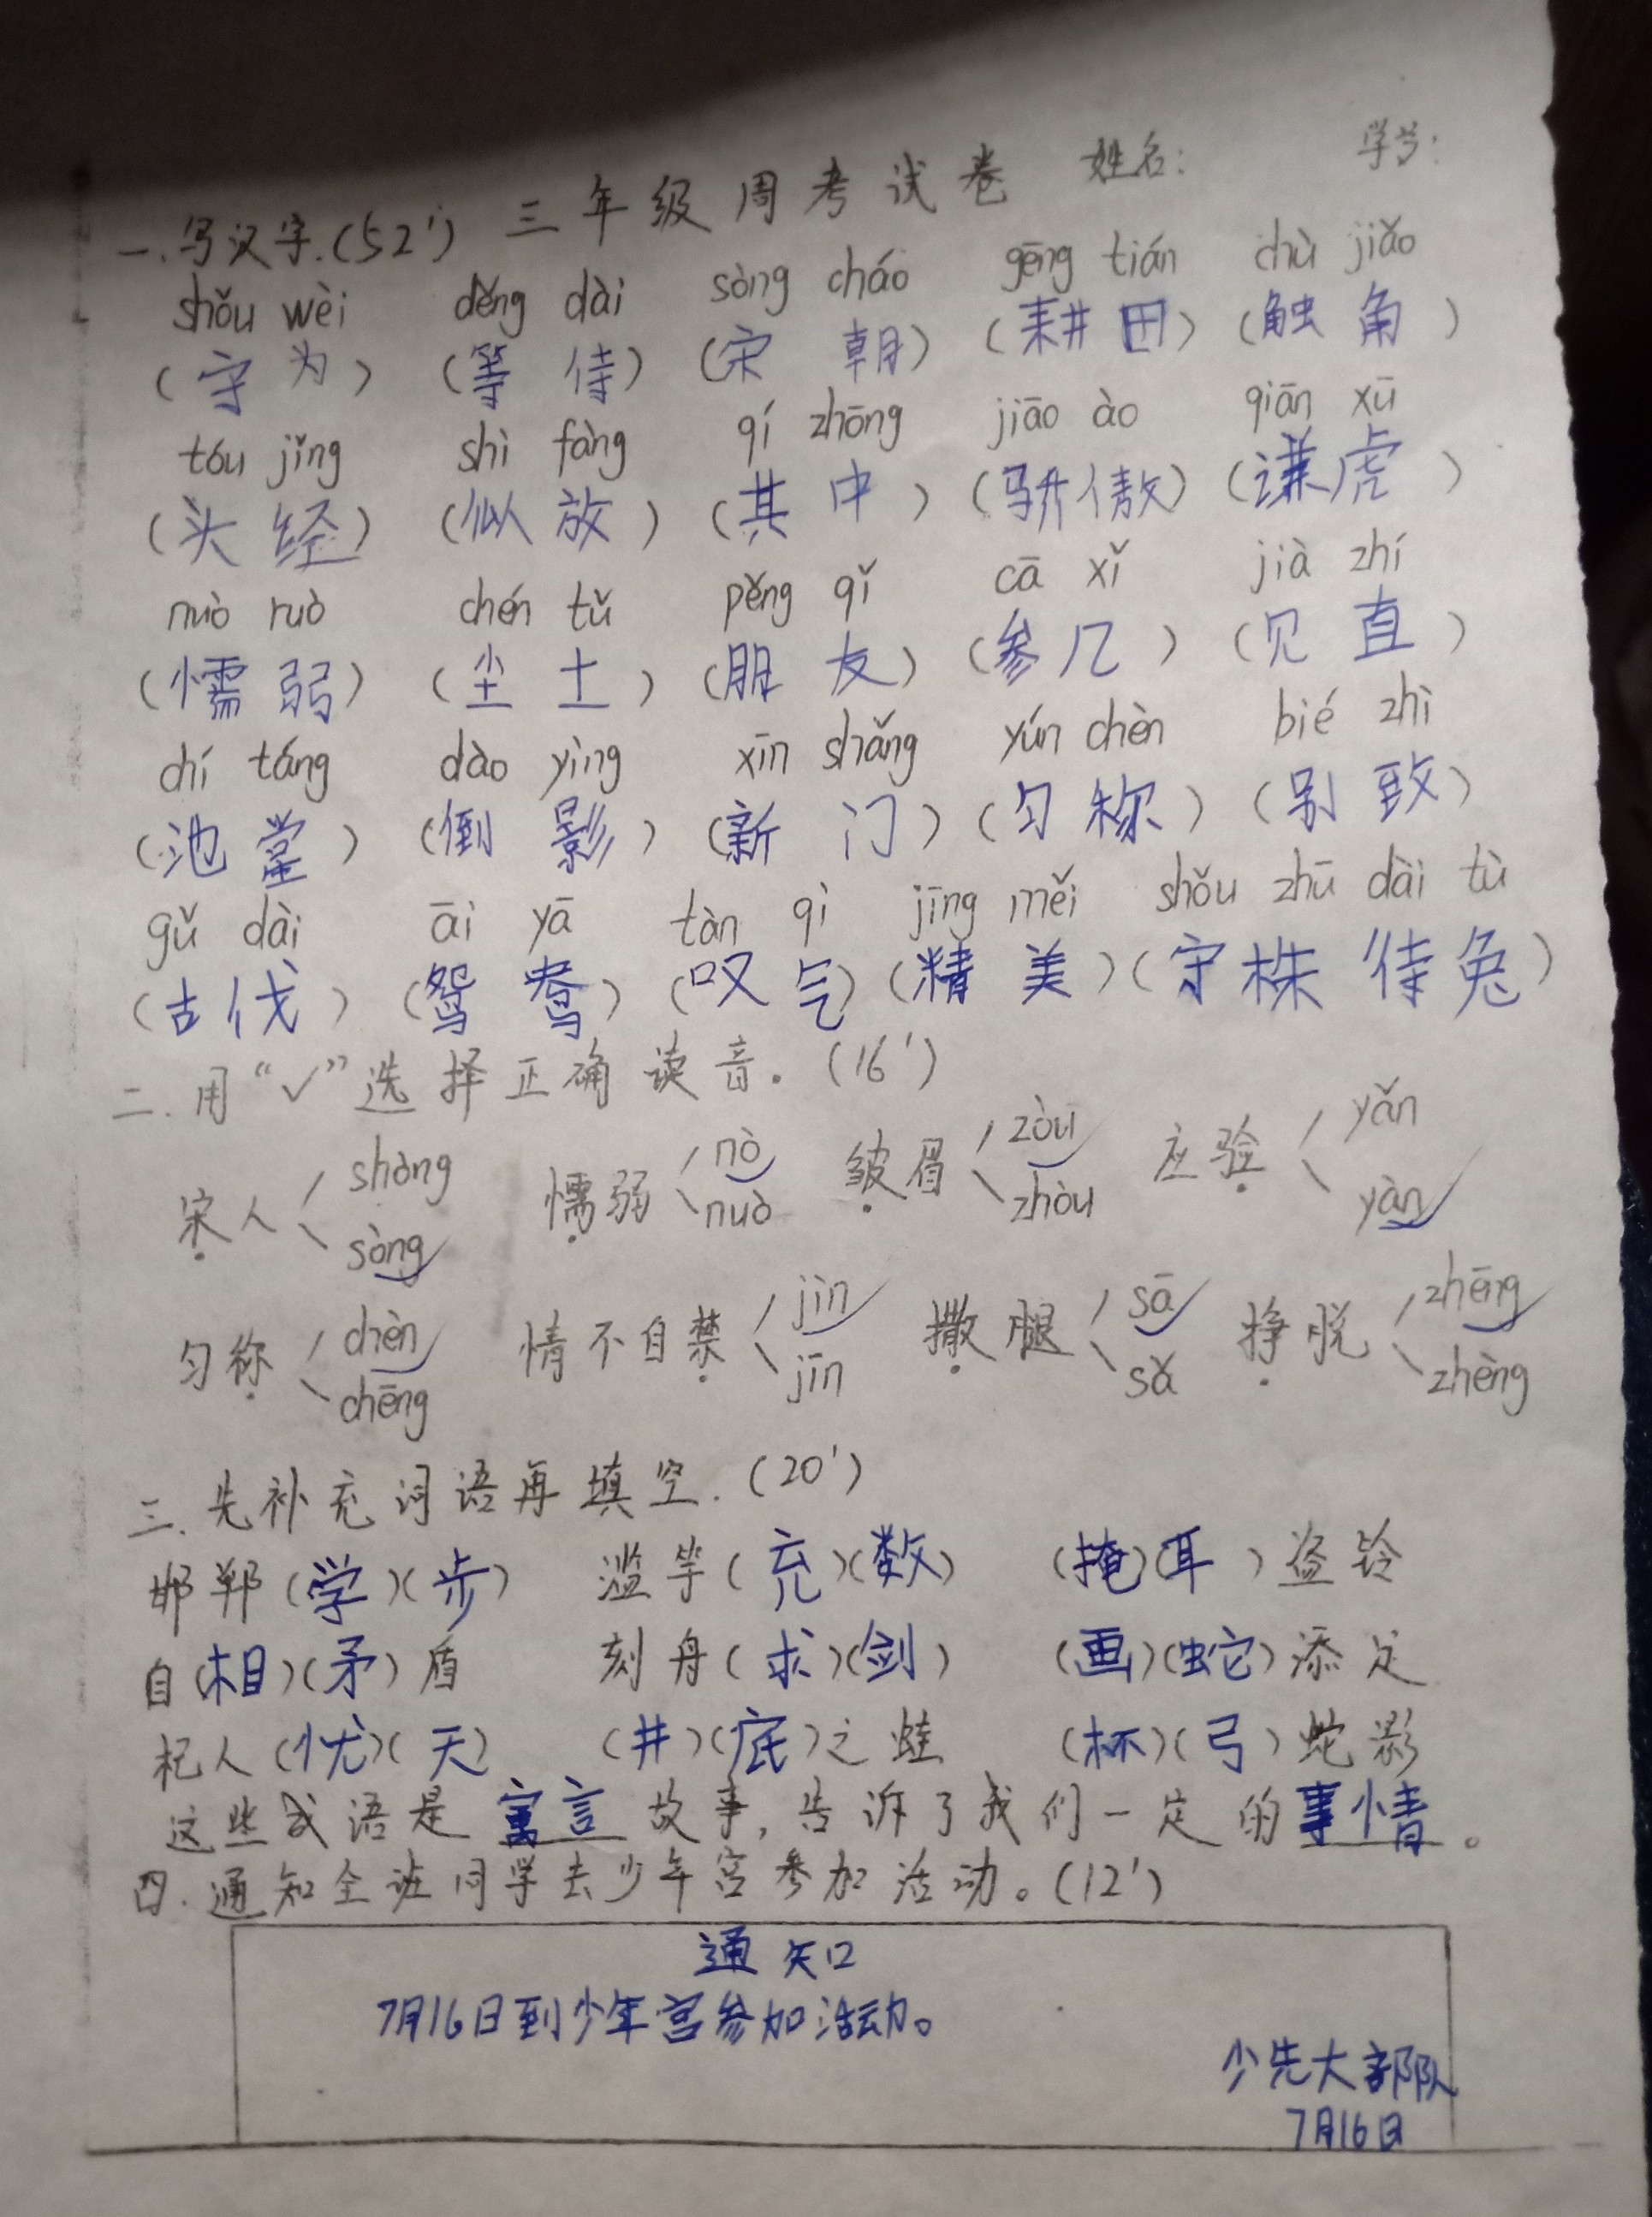 三年级周考试卷 姓名: 学号:
一.写汉字.(52')
shǒu wèi děng dài sòng cháo gēng tián chù jiǎo
(守为) (等侍) (宋朝) (耕田) (触角)
tóu jǐng shì fàng qí zhōng jiāo ào qiān xū
(头经) (似放) (其中) (骄傲) (谦虎)
nuò ruò chén tǔ pěng qǐ cā xǐ jià zhí
(懦弱) (尘土) (朋友) (参几) (见直)
chí táng dào yìng xīn shǎng yún chèn bié zhì
(池堂) (倒影) (新门) (匀称) (别致)
gǔ dài āi yā tàn qì jīng měi shǒu zhū dài tù
(古伐) (鸳鸯) (叹气) (精美) (守株侍兔)
二.用“✓”选择正确读音。(16')
宋人 shòng sòng 懦弱 nò nuò 皱眉 zòu zhòu 应验 yǎn yàn
匀称 chèn chēng 情不自禁 jìn jīn 撒腿 sā sǎ 挣脱 zhēng zhèng
三.先补充词语再填空.(20')
邯郸(学)(步) 滥竽(充)(数) (掩)(耳)盗铃
自(相)(矛)盾 刻舟(求)(剑) (画)(蛇)添足
杞人(忧)(天) (井)(底)之蛙 (杯)(弓)蛇影
这些成语是寓言故事,告诉了我们一定的事情。
四.通知全班同学去少年宫参加活动。(12')
通知
7月16日到少年宫参加活动。
少先大部队
7月16日